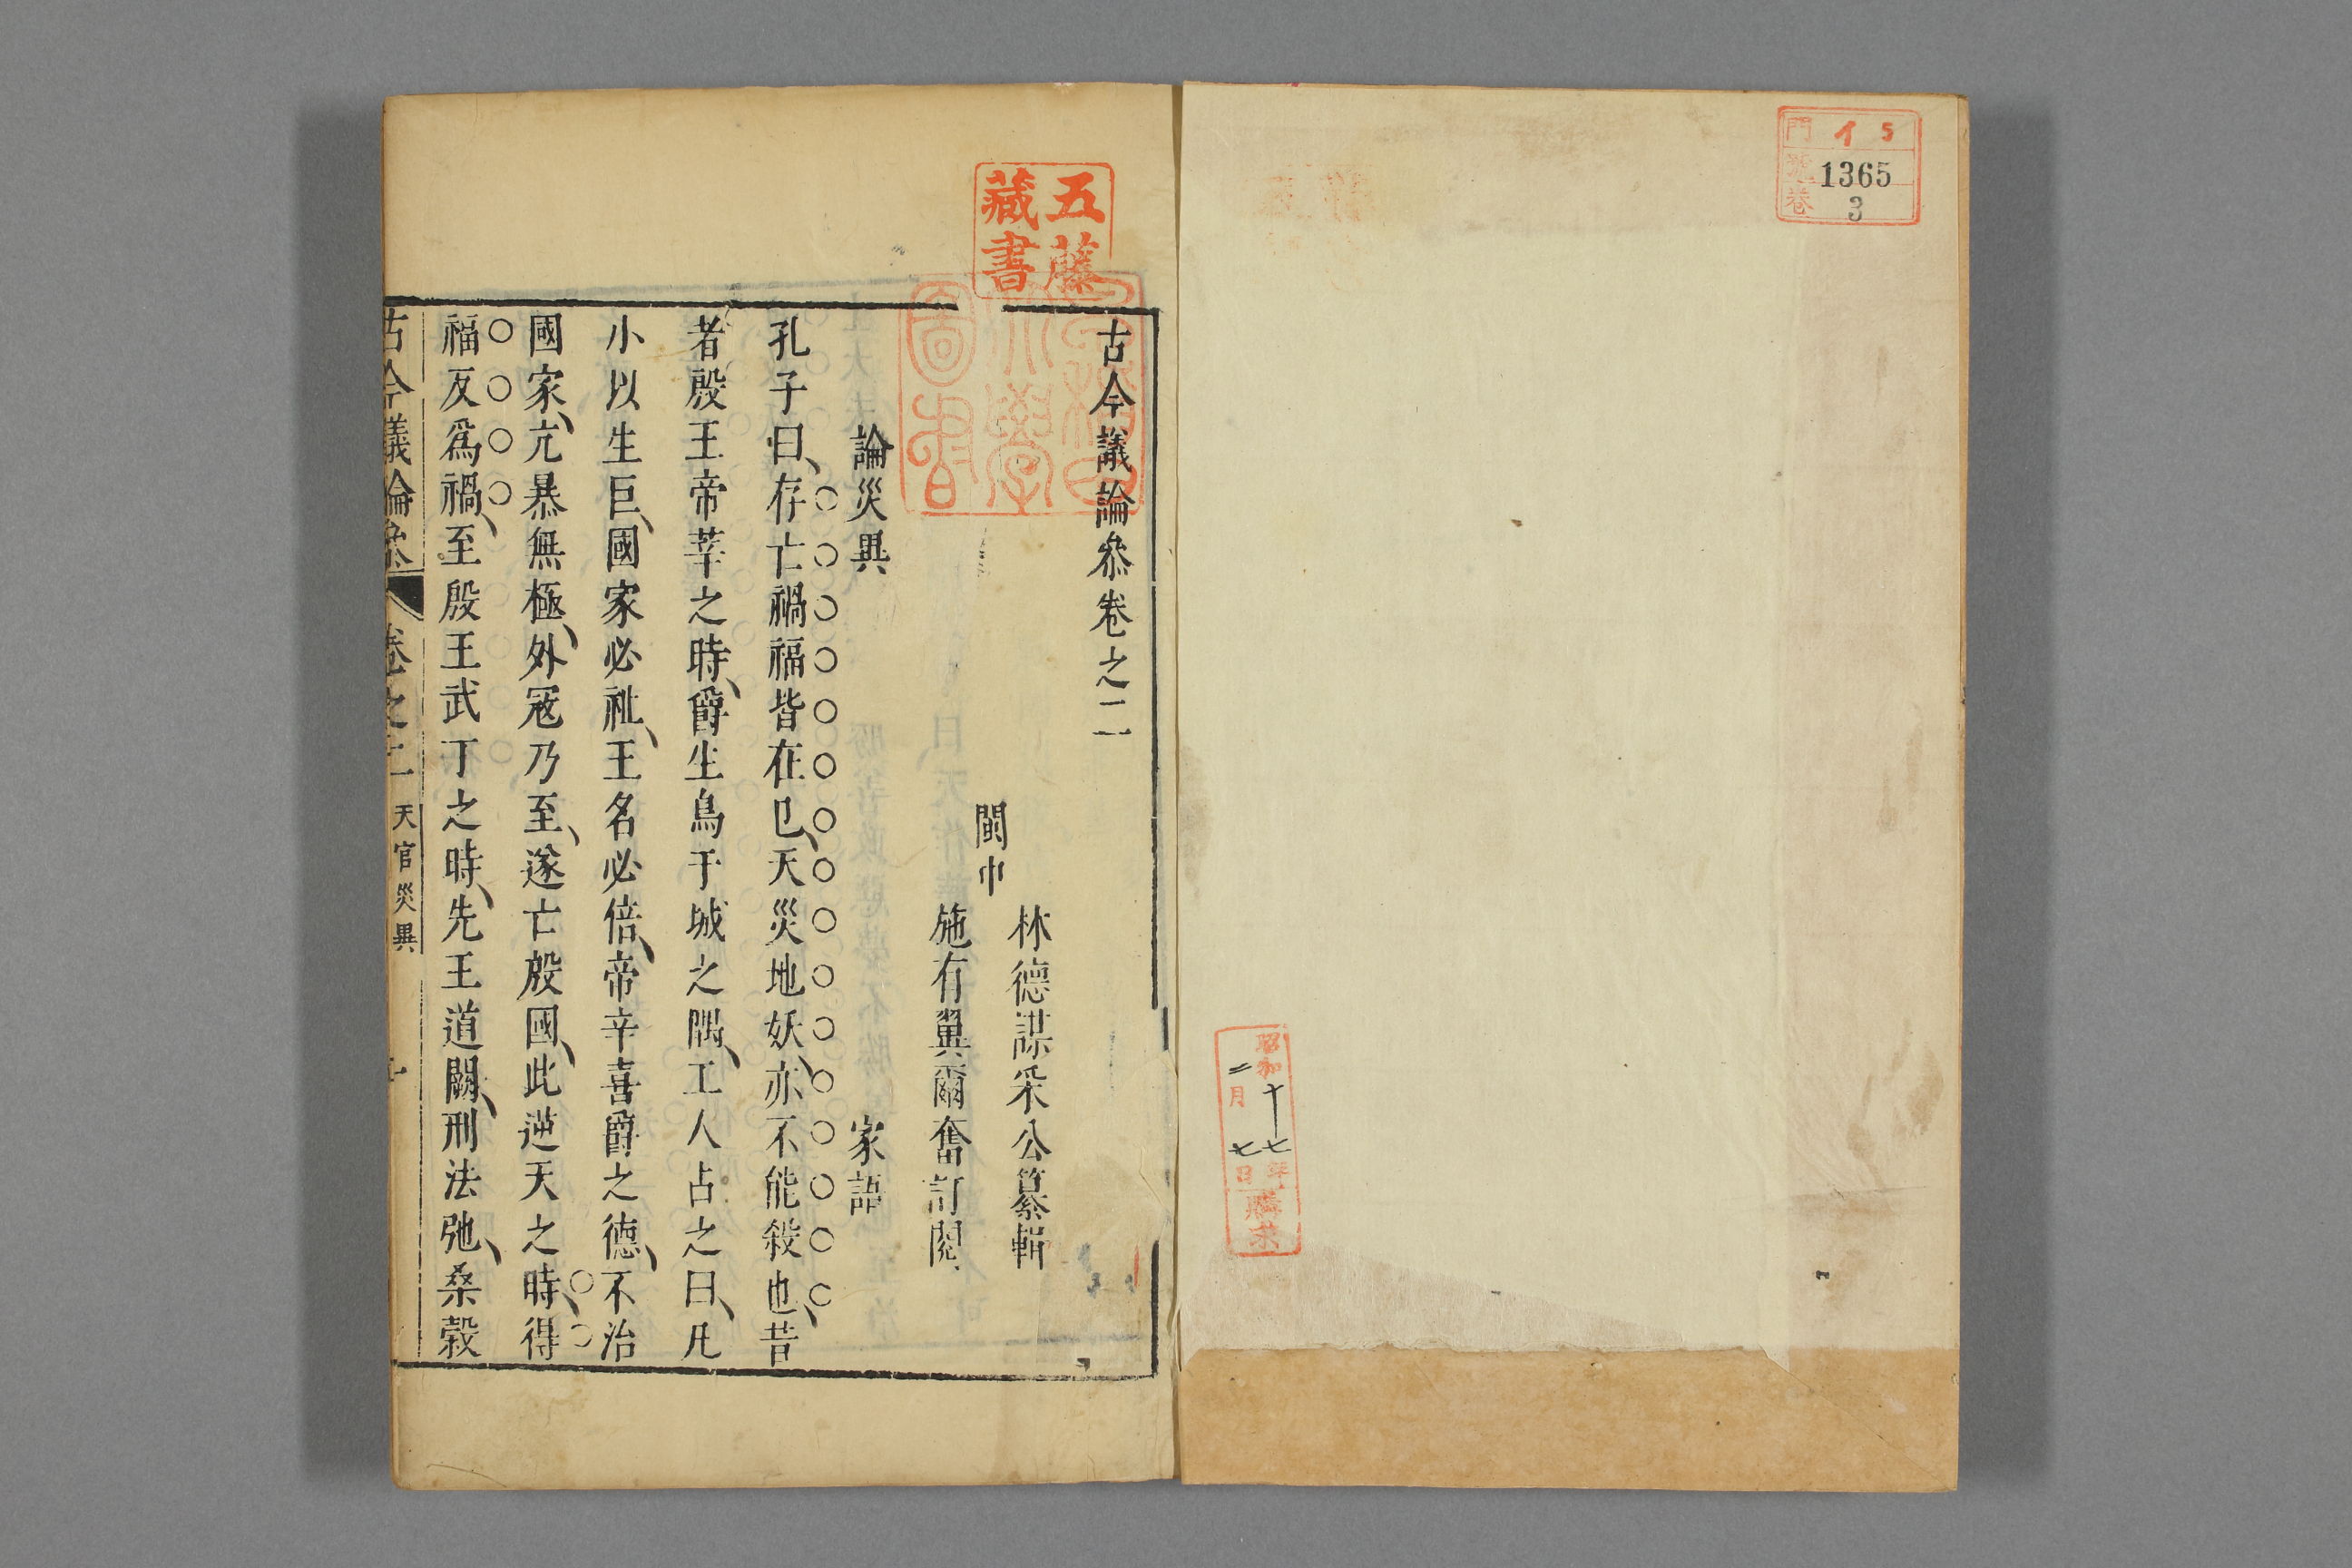 門 イ 5
號 1365
卷 3
昭和十七年
二月七日
購求
五藤
藏書
早稻田
大學
圖書
古今議論叅卷之二
林德謀采公纂輯
閩中
施有翼爾奮訂閱
論災異 家語
孔子曰、存亡禍福皆在已、天災地妖、亦不能殺也、昔
者殷王帝莘之時、爵生烏于城之隅、工人占之曰、凡
小以生巨、國家必祉、王名必倍、帝辛喜爵之德、不治
國家、亢暴無極、外寇乃至、遂亡殷國、此逆天之時、得
福反爲禍、至殷王武丁之時、先王道闕、刑法弛、桑榖
古今議論叅 卷之二 天官災異